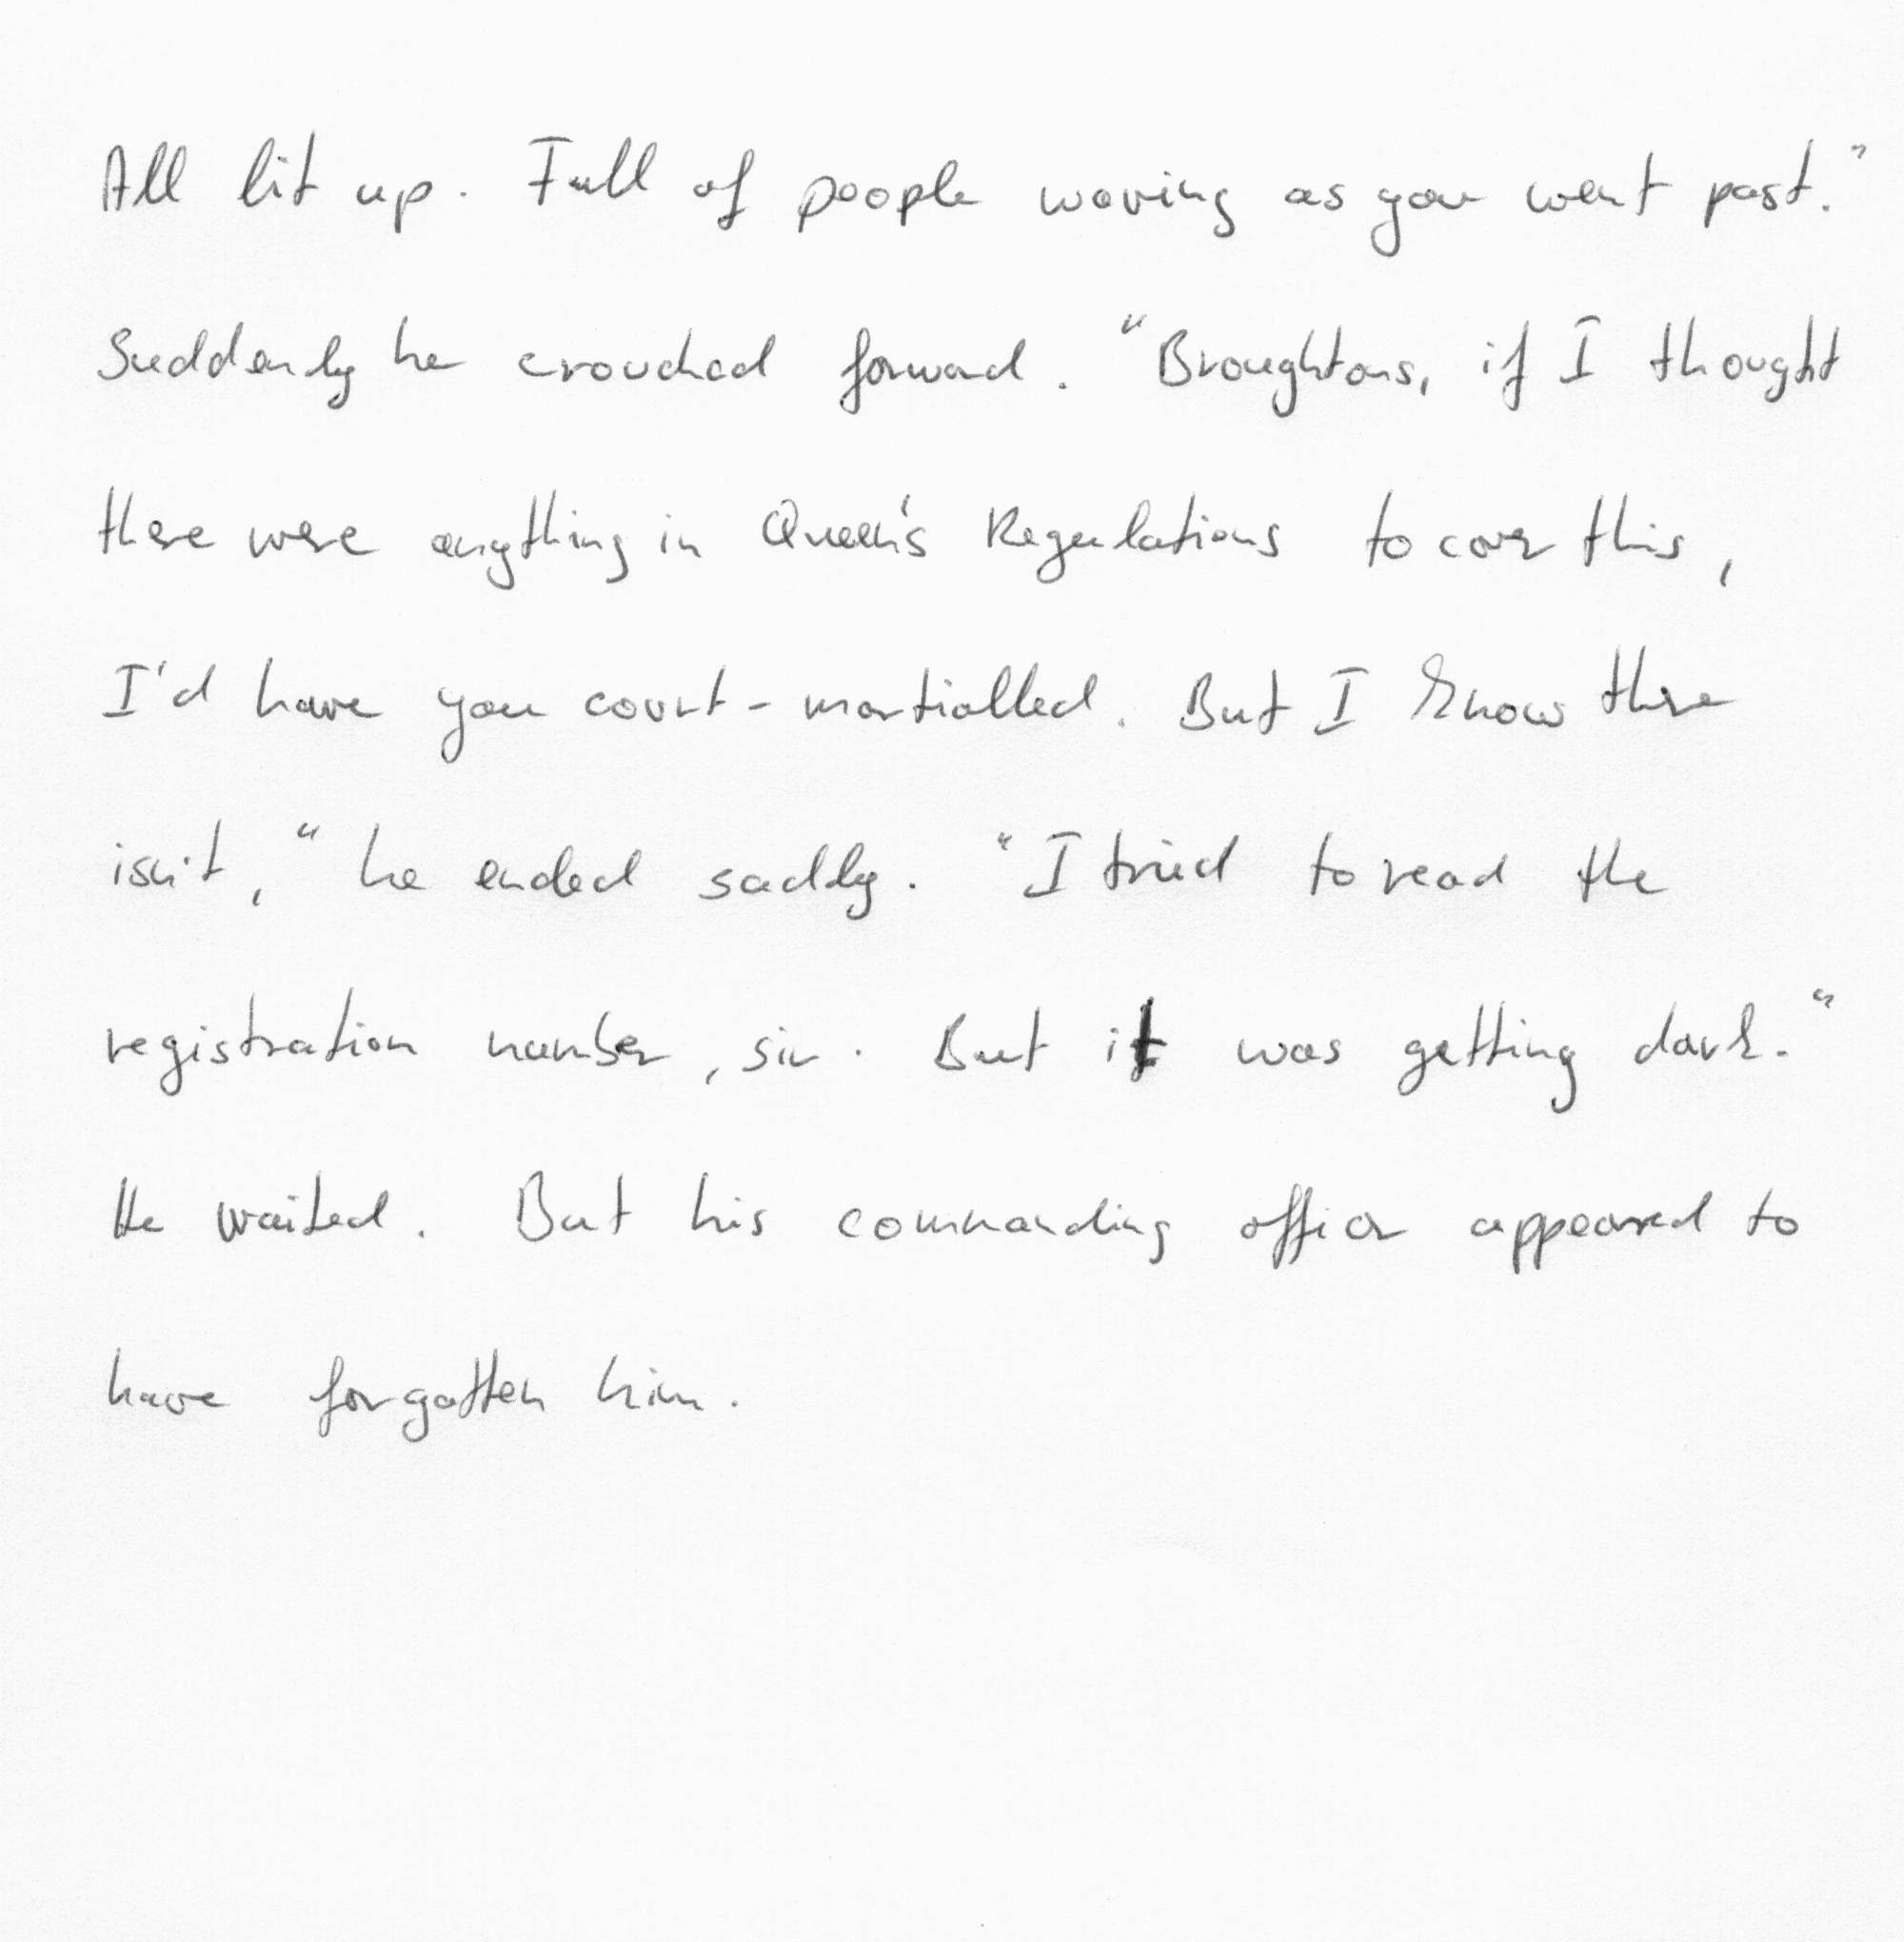 All lit up. Full of people waving as you went past."
Suddenly he crouched forward. "Broughtons, if I thought
there were anything in Queen's Regulations to cover this,
I'd have you court-martialled. But I know there
isn't," he ended sadly. "I tried to read the
registration number, sir. But it was getting dark."
He waited. But his commanding officer appeared to
have forgotten him.